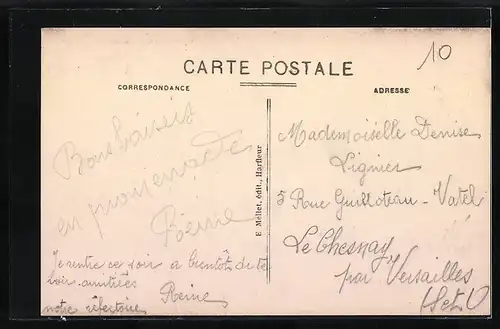 10
CARTE POSTALE
CORRESPONDANCE
ADRESSE
Bons baisers
en promenade
Reine
Je rentre ce soir a bientôt de te
voir amitiés
notre réfectoire Reine
E. Mellet, édit., Harfleur
Mademoiselle Denise
Lignier
5 Rue Guilloteau-Vatel
Le Chesnay
par Versailles
(S et O)